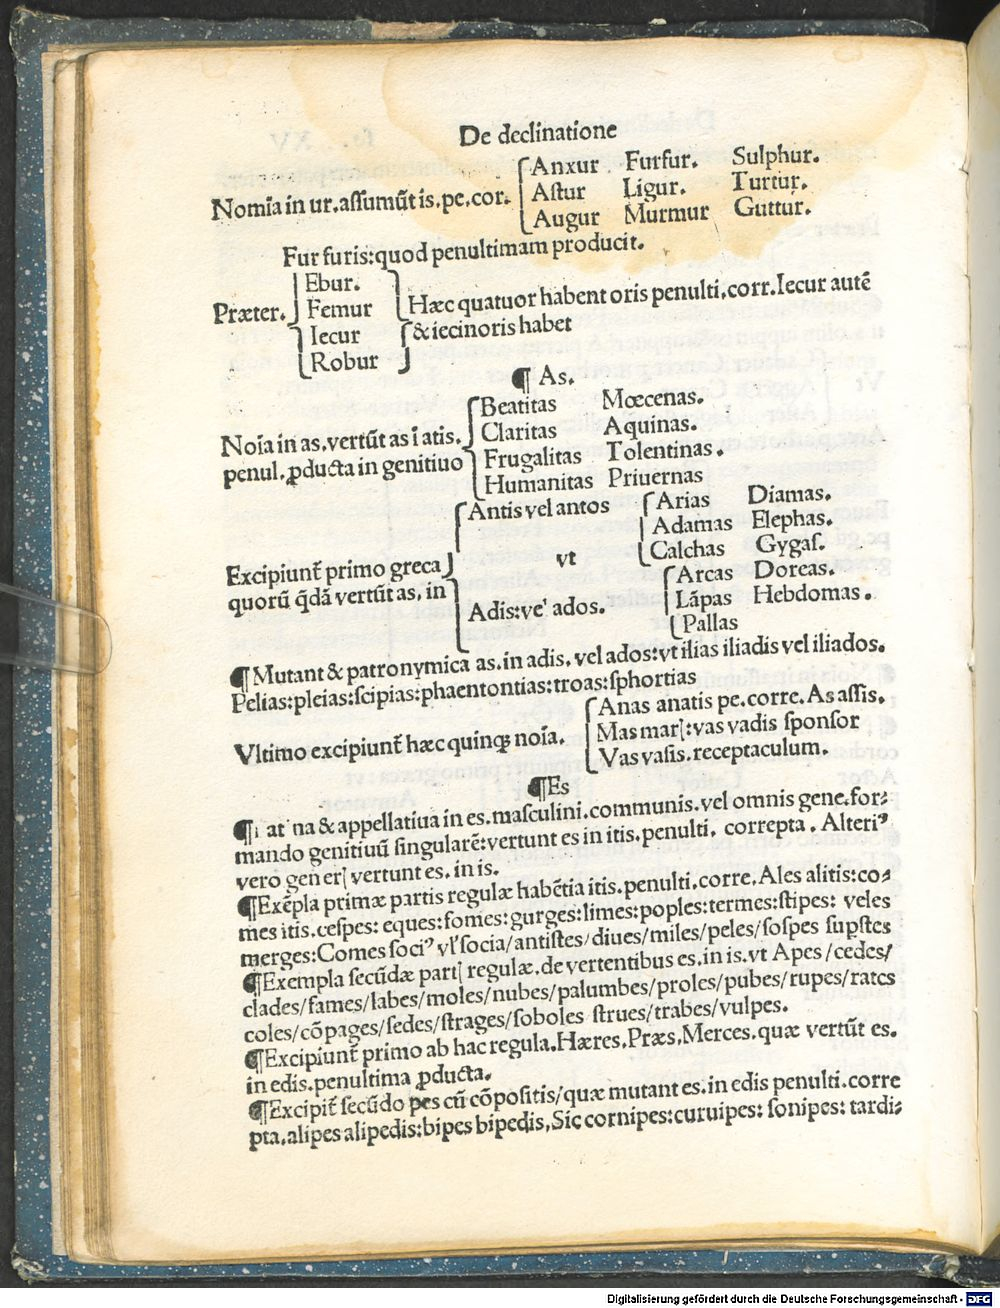 De declinatione
Nomĩa in ur. assumũt is. pe. cor. Anxur Furfur. Sulphur.
Astur Ligur. Turtur.
Augur Murmur Guttur.
Fur furis: quod penultimam producit.
Præter. Ebur.
Femur
Iecur
Robur
Hæc quatuor habent oris penulti. corr. Iecur autẽ
& iecinoris habet
¶ As.
Noĩa in as. vertũt as ĩ atis.
penul. ꝓducta in genitiuo
Beatitas Mœcenas.
Claritas Aquinas.
Frugalitas Tolentinas.
Humanitas Priuernas
Excipiunt̃ primo greca
quorũ q̃dã vertũt as. in
Antis vel antos
vt
Arias Diamas.
Adamas Elephas.
Calchas Gygas.
Adis: ve' ados.
Arcas Doreas.
Lãpas Hebdomas.
Pallas
¶ Mutant & patronymica as. in adis. vel ados: vt ilias iliadis vel iliados.
Pelias: pleias: scipias: phaentontias: troas: sphortias
Vltimo excipiunt̃ hæc quinqꝫ noĩa.
Anas anatis pe. corre. As assis.
Mas marꝭ: vas vadis sponsor
Vas vasis. receptaculum.
¶ Es
na & appellatiua in es. masculini. communis. vel omnis gene. for⸗
mando genitiuũ singularẽ: vertunt es in itis. penulti. correpta. Alteriꝰ
vero generꝭ vertunt es. in is.
¶ Exẽpla primæ partis regulæ habẽtia itis. penulti. corre. Ales alitis: co⸗
mes itis. cespes: eques: fomes: gurges: limes: poples: termes: stipes: veles
merges: Comes sociꝰ vl' socia/antistes/diues/miles/peles/sospes supstes
¶ Exempla secũdæ partꝭ regulæ. de vertentibus es. in is. vt Apes/cedes/
clades/fames/labes/moles/nubes/palumbes/proles/pubes/rupes/rates
coles/cõpages/sedes/strages/soboles strues/trabes/vulpes.
¶ Excipiunt̃ primo ab hac regula. Hæres. Præs. Merces. quæ vertũt es.
in edis. penultima ꝓducta.
¶ Excipit̃ secũdo pes cũ cõpositis/quæ mutant es. in edis penulti. corre
pta. alipes alipedis: bipes bipedis. Sic cornipes: curuipes: sonipes: tardi⸗
Digitalisierung gefördert durch die Deutsche Forschungsgemeinschaft - DFG